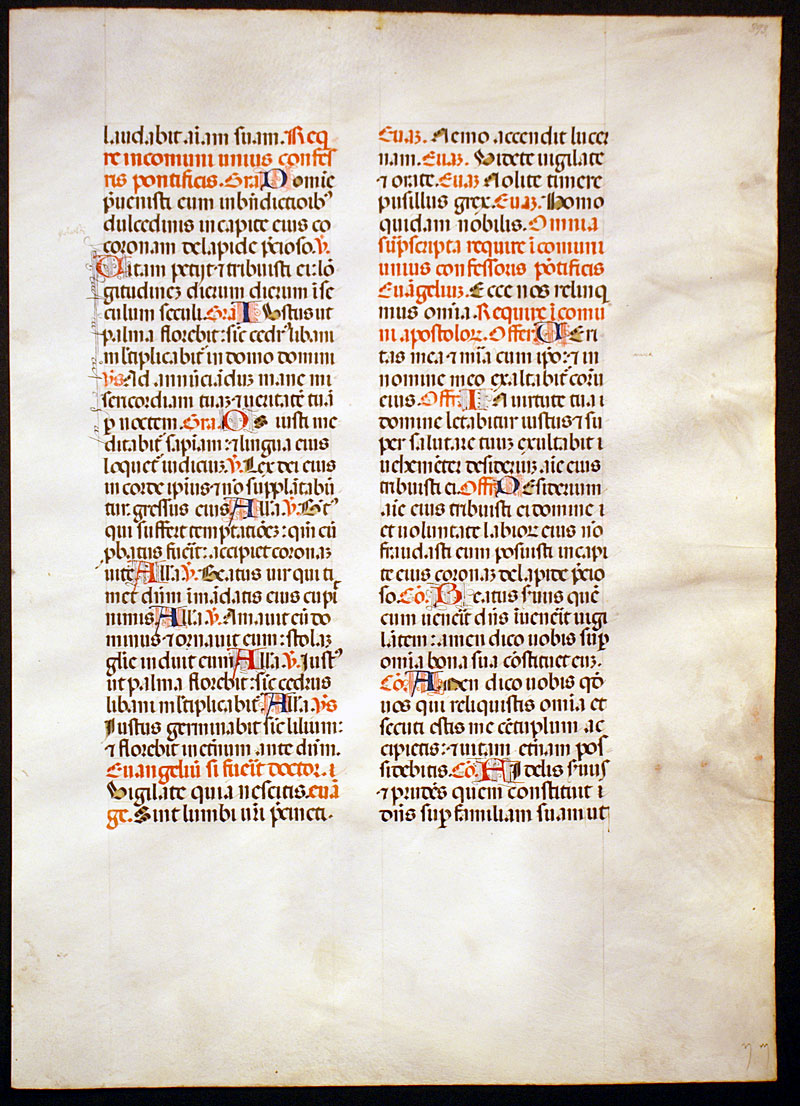 laudabit aīam suam. Req
re in comuni unius confes
ris pontificis. Gra. Domīe
p̄uenisti eum in bn̄dictioibꝰ
dulcedinis in capite eius co
coronam de lapide p̄cioso. V̄.
Uitam petijt ⁊ tribuisti ei: lō
gitudinez dierum dierum ī se
culum seculi. Gra. Iustus ut
palma florebit: sic̄ cedrꝰ libani
ml̄tiplicabit̄ in domo domini
Vs Ad annūciādūz mane mi
sericordiam tuaz ⁊ ueritatē tuā
ꝑ noctem. Gra. Os iusti me
ditabit̄ sapīam: ⁊ lingua eius
loquet̄ iudiciuz. V̄. Lex dei eius
in corde ip̄ius ⁊ nō supplātabū
tur gressus eius. Alla. V̄. Bt̄ꝰ
qui suffert temptatiōez: qm̄ cū
ꝓbatus fuerit: accipiet coronaz
uite Alla. V̄. Beatus uir qui ti
met dn̄m ī mādatis eius cupi
nimis Alla. V̄. Amauit eū do
minus ⁊ ornauit eum: stolaz
glīe induit eum Alla. V̄. Justꝰ
ut palma florebit: sic̄ cedrus
libani ml̄tiplicabit̄ Alla. Vs
Iustus germinabit sic̄ lilium:
⁊ florebit in et̄num ante dn̄m.
Euangeliū si fuerit doctor. i
Vigilate quia nescitis. euā
ge. Sint lumbi ur̄i p̄cincti.
Euaz. Nemo accendit lucer
nam. Euaz. Videte uigilate
⁊ orate. Euaz Nolite timere
pusillus grex. Euaz. Homo
quidam nobilis. Omnia
sup̄scripta require ī comuni
unius confessoris pōtificis
Euāgeliuz. Ecce nos relinq
mus om̄ia. Require ī comu
ni apostoloꝝ. Offer. Ueri
tas mea ⁊ mīa cum ip̄o: ⁊ in
nomine meo exaltabit̄ cornu
eius. Offr̄. In uirtute tua i
domine letabitur iustus ⁊ su
per salutare tuuz exultabit i
uehemēter desideriuz aīe eius
tribuisti ei. Offr̄ Desiderium
aīe eius tribuisti ei domine i
et uoluntate labioꝝ eius nō
fraudasti eum posuisti in capi
te eius coronaz de lapide p̄cio
so. Cō. Beatus s̄uus quē
cum uenerit dn̄s īuenerit uigi
lātem: amen dico uobis sup̄
om̄ia bona sua cōstituet euz.
Cō. Amen dico uobis qd̄
uos qui reliquistis om̄ia et
secuti estis me cētuplum ac
cipietis: ⁊ uitam et̄nam pos
sidebitis. Cō. Fidelis s̄uus
⁊ prudēs quem constituit i
dn̄s sup familiam suam ut